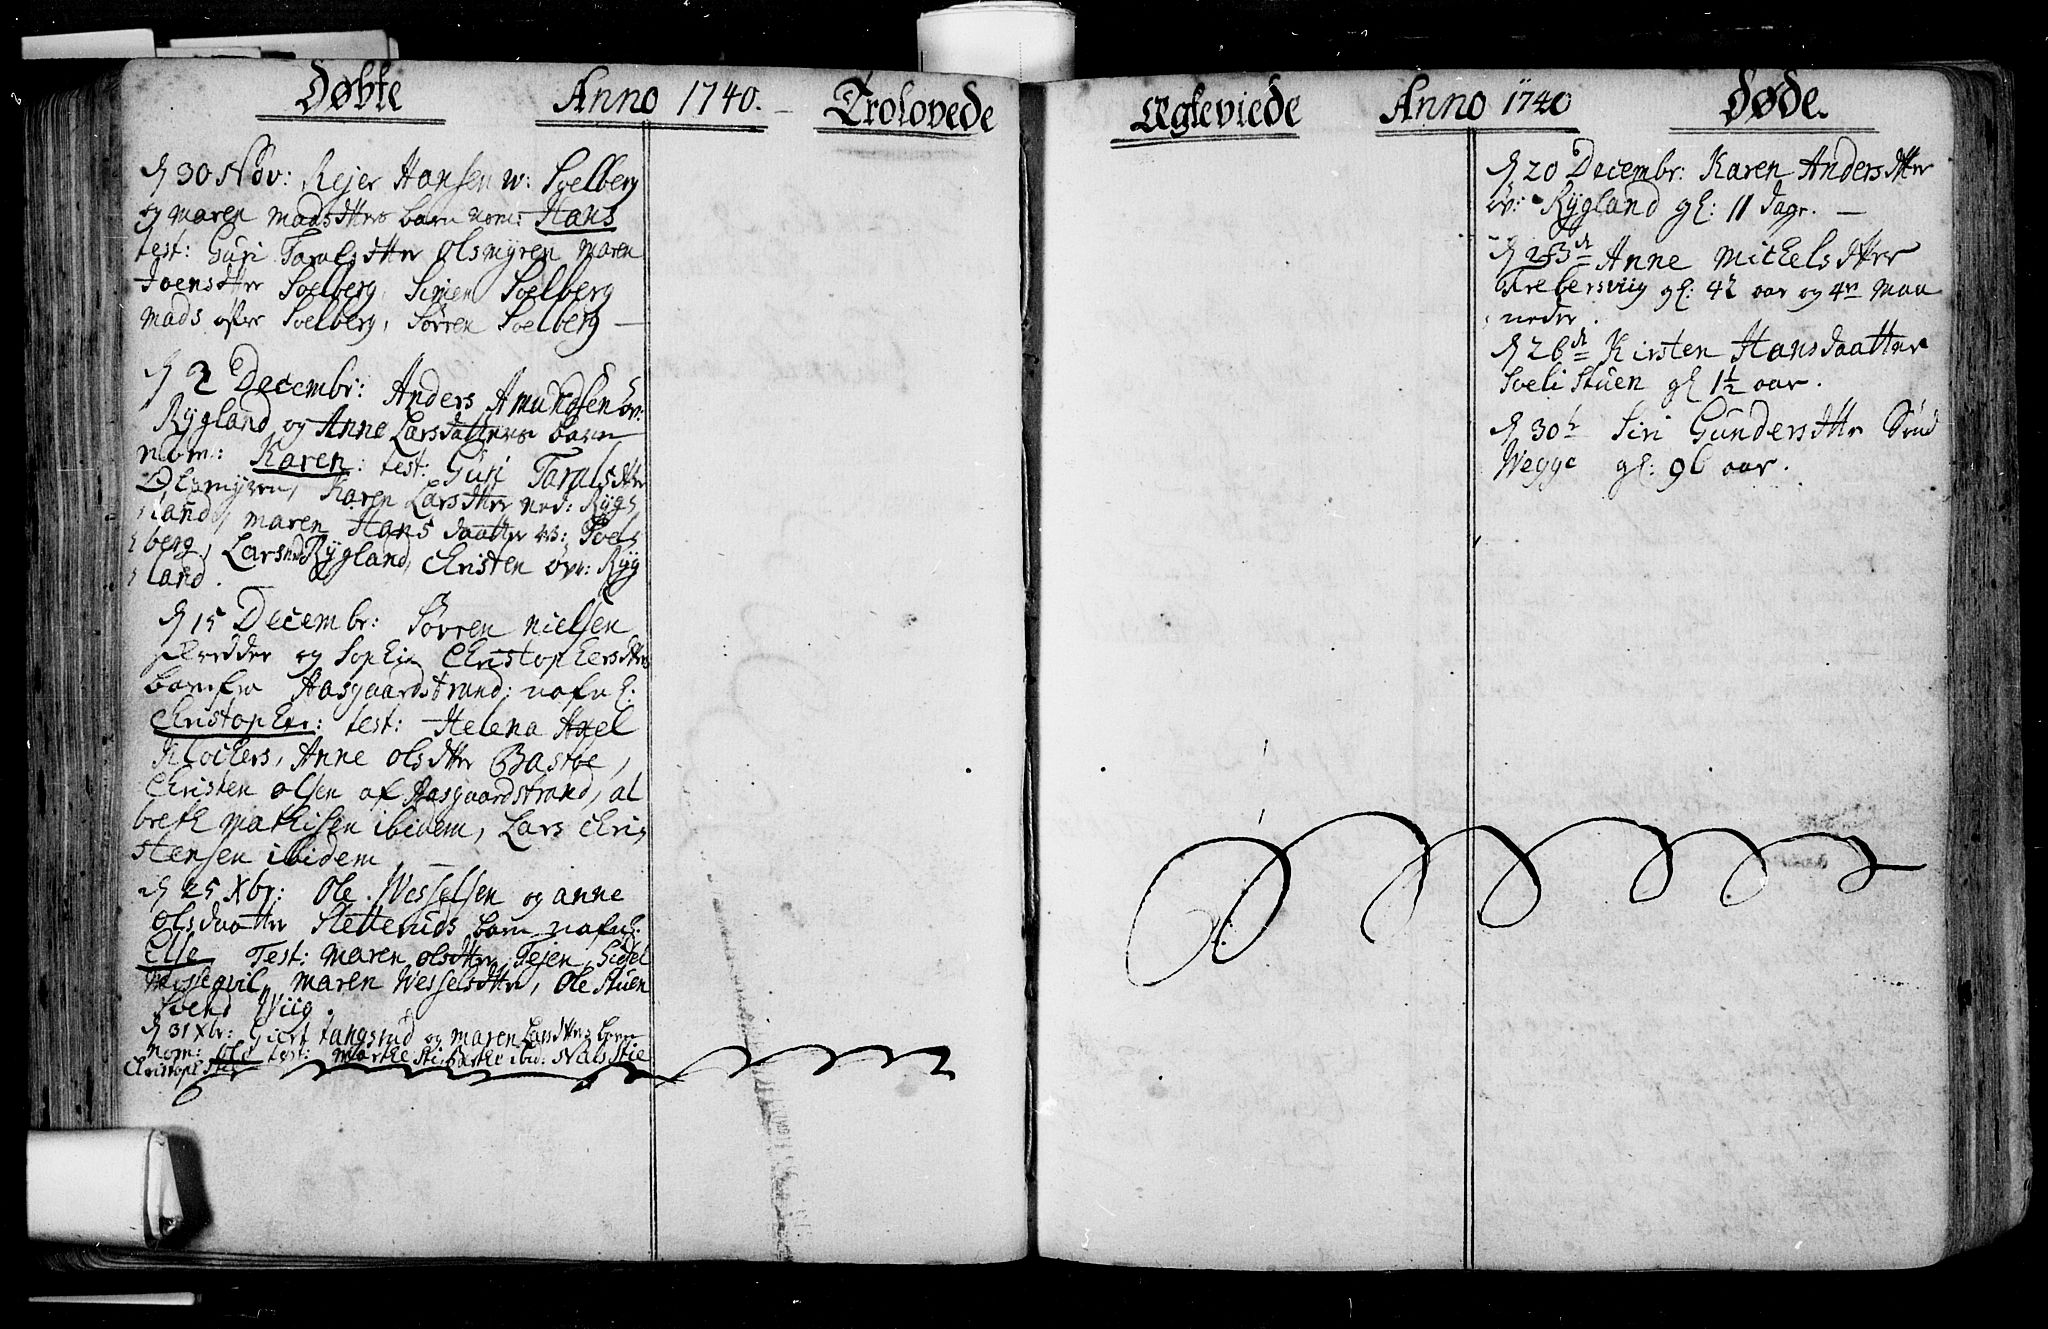 Døbte Anno 1740. Trolovede
D 30 Nov: Rejer Hansen w: Soelberg
og Maren Madsdtters barn nom: Hans
test: Guri Taralsdtter Olsmyren Maren
Joensdtter Soelberg, Simen Soelberg
Mads Soelberg, Sørren Soelberg —
D 2 Decembr: Anders Amundsen ov:
Rygland og Anne Larsdatters barn
nom: Karen: test: Guri Taralsdtter
Olsmyren, Karen Larsdtter ned: Ryg
land, Maren Hansdaatter Soel
berg, Lars ned Rygland, Christen ovr: Ryg
land.
D 15 Decembr: Sørren Nielsen
og Sophie Christophersdtters
barn fra Aasgaardstrand; nafnl:
Christopher: test: Helena Axel
Klockers, Anne Olsdtter Bastøe,
Christen Olsen af Aasgaardstrand, Al
breth Mathisen ibidem, Lars Chri
stensen ibidem. —
D 25 Xbr: Ole Wesselsen og Anne
Olsdaatter Sletteruds barn nafnl:
Else Test: Maren Olsdtter Tejen, Sidsel
Maren Wesselsdtter, Ole Stuen
Svend Wiig.
D 31 Xbr: Giert Langsrud og Maren Larsdtters barn
nom: Ole test: Marthe Stie ibid: Niels Stie
Christoph Stie
Ægteviede Anno 1740 Døde.
D 20 Decembr: Karen Andersdtter
ov: Rygland gl: 11 dage. —
D 23d Anne Michelsdtter
Trebersviig gl: 42 aar og 4re Maa
neder.
D 26d Kirsten Hansdaatter
Soeli Stuen gl 1½ aar.
D 30t Siri Gundersdtter Sønd
Wegge gl: 96 aar.